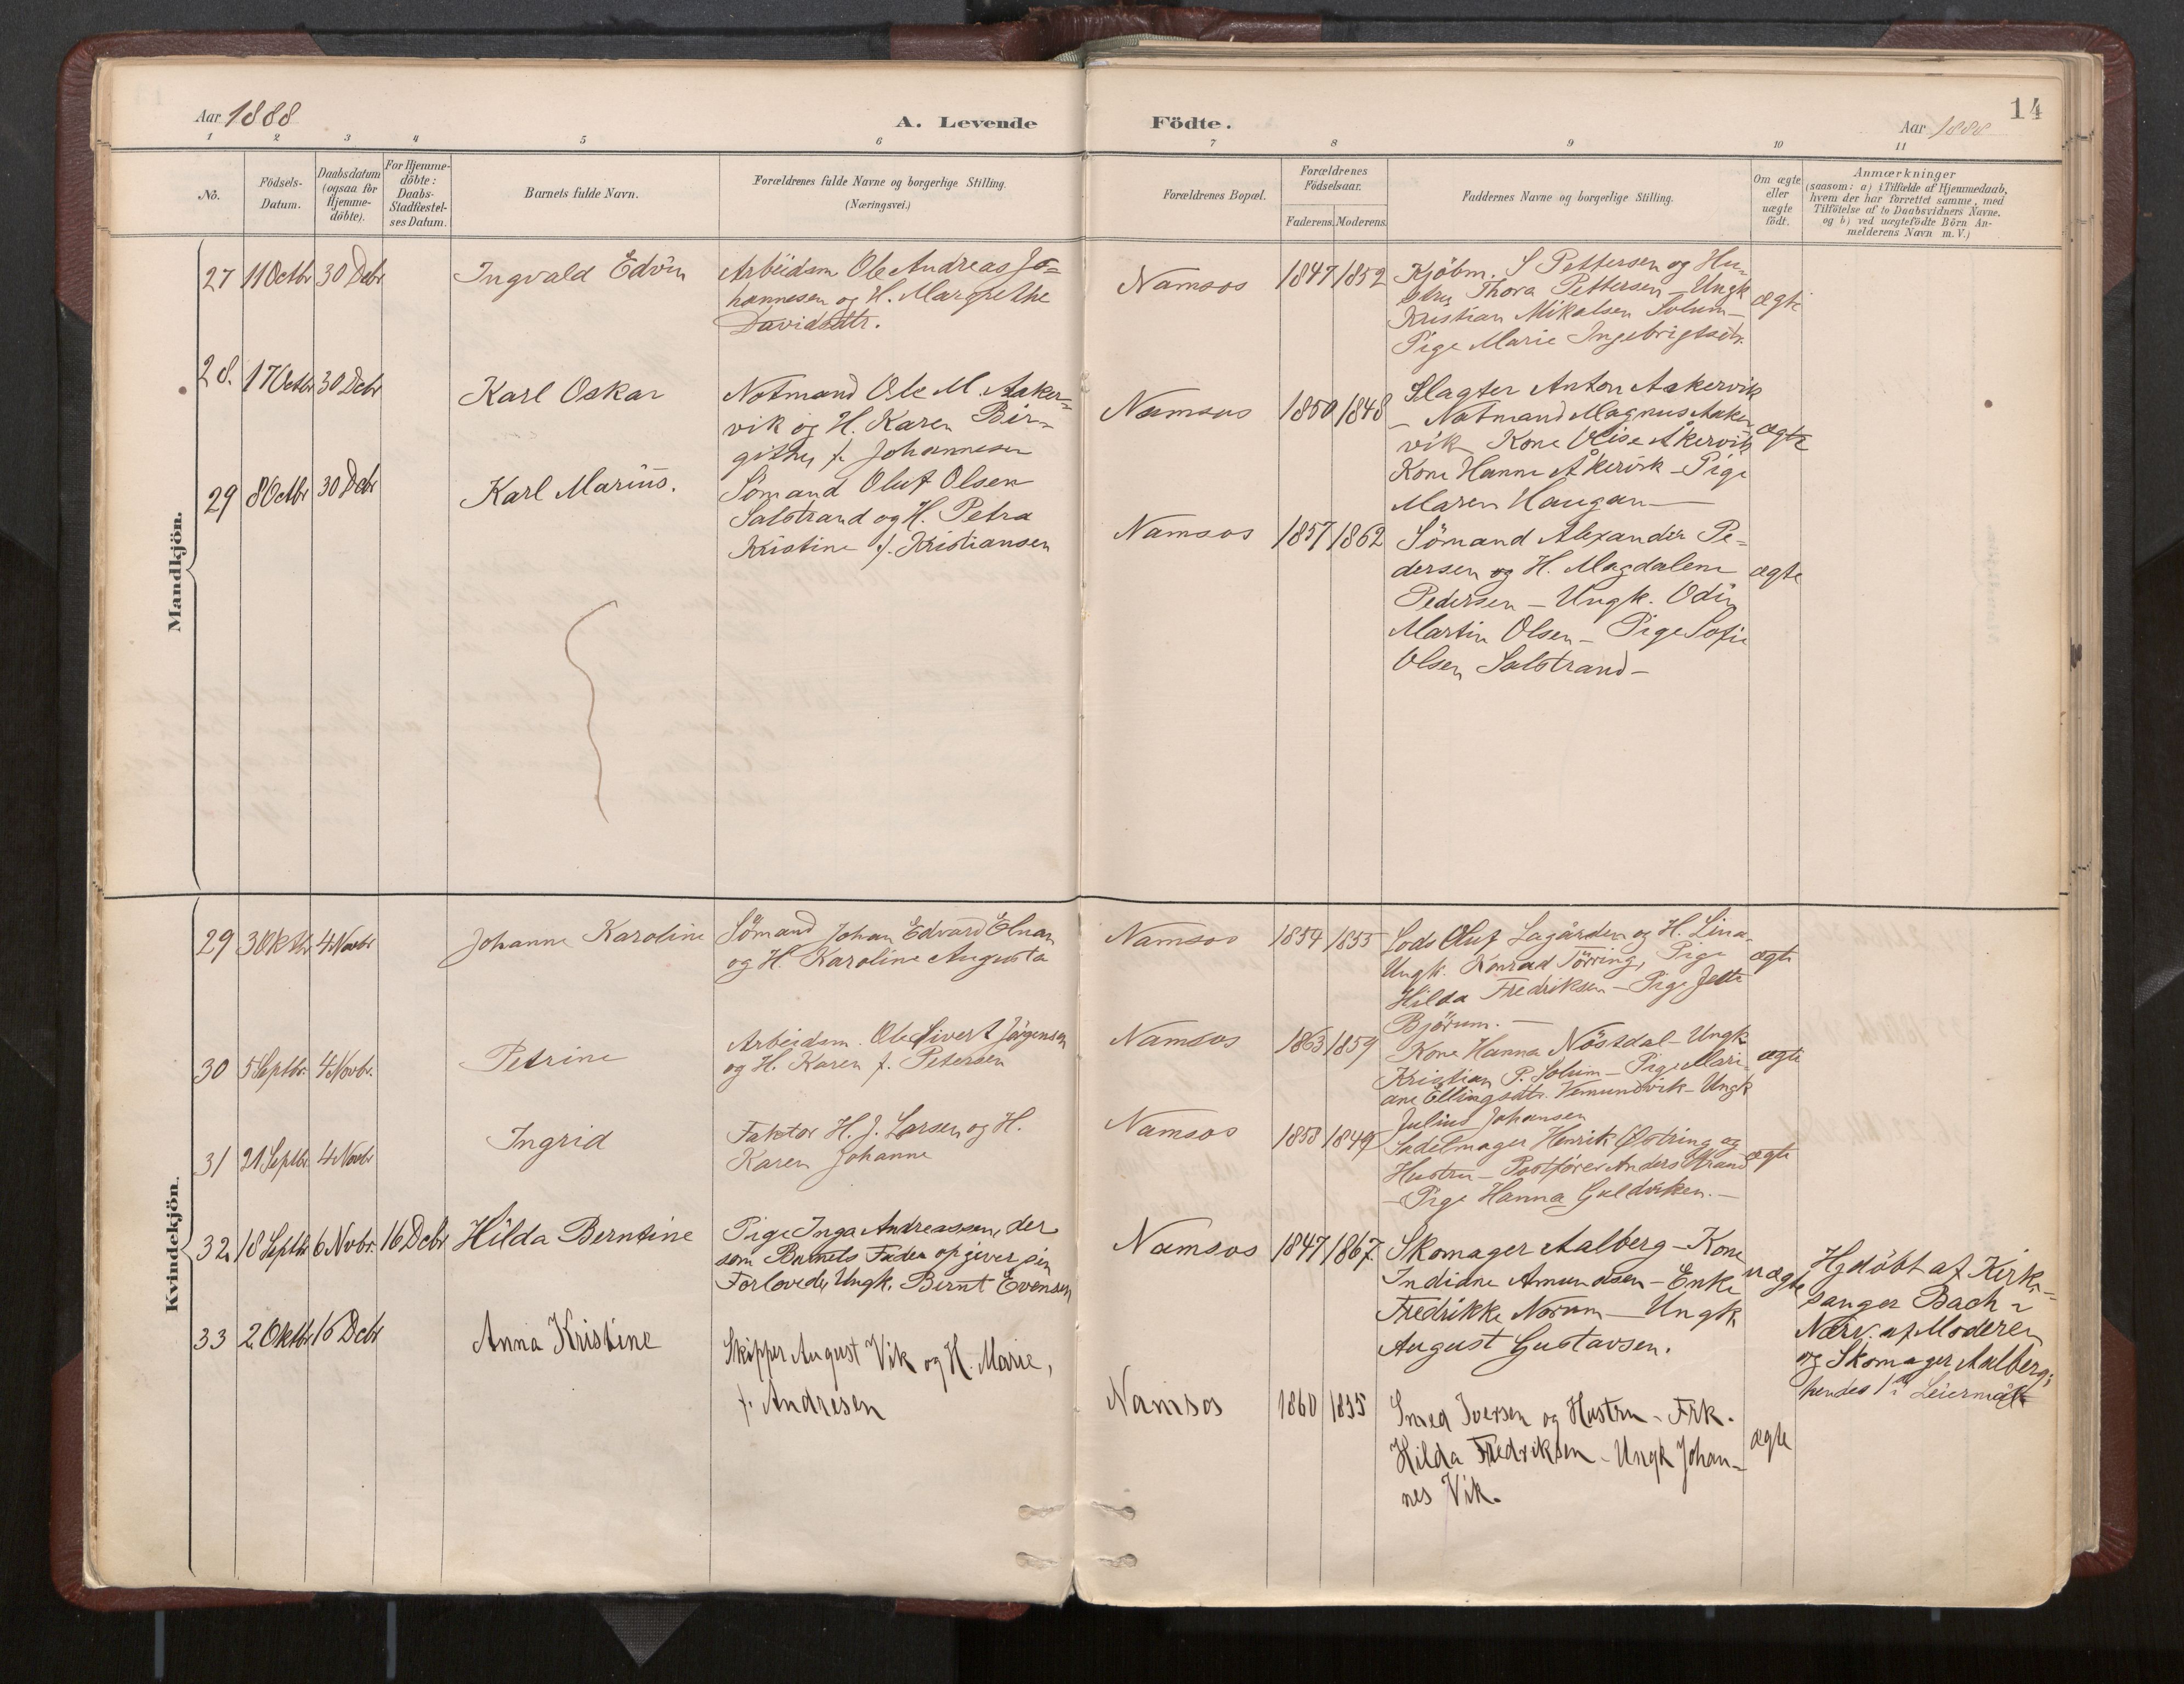 Aar 1888
A. Levende Födte.
14
Aar 1888
1 2 3 4 5 6 7 8 9 10 11
No.
Födsels-
Datum.
Daabsdatum
(ogsaa for
Hjemme-
döbte).
For Hjemme-
döbte:
Daabs-
Stadfæstel-
ses Datum.
Barnets fulde Navn.
Forældrenes fulde Navne og borgerlige Stilling.
(Næringsvei.)
Forældrenes Bopæl.
Forældrenes
Födselsaar.
Faderens. Moderens.
Faddernes Navne og borgerlige Stilling.
Om ægte
eller
uægte
födt.
Anmærkninger
(saasom: a) i Tilfælde af Hjemmedaab,
hvem der har forrettet samme, med
Tilföielse af to Daabsvidners Navne,
og b) ved uægtefödte Börn An-
melderens Navn m. V.)
Mandkjön.
27 11 Octbr 30 Dcbr
Ingvald Edvin
Arbeidsm Ole Andreas Jo=
hannesen og H. Margrethe
Davidsdtr.
Namsos
1847 1852
Kjöbm. S Pettersen og Hu-
stru Thora Pettersen - Ungk
Kristian Mikalsen Solum -
Pige Marie Ingebrigtsdtr.
ægte
28. 17 Octbr 30 Dcbr
Karl Oskar
Notmand Ole M. Aaker=
vik og H. Karen Bir=
githe f. Johannesen
Namsos
1850 1848
Slagter Anton Aakervik
- Notmand Magnus Aaker
vik Kone Elise Åkervik
Kone Hanne Åkervik - Pige
Maren Haugan -
ægte
29 8 Octbr 30 Dcbr
Karl Marius.
Sömand Oluf Olsen
Salstrand og H. Petra
Kristine f. Kristiansen
Namsos
1857 1862
Sömand Alexander Pe=
dersen og H. Magdalene
Pedersen - Ungk. Odin
Martin Olsen - Pige Sofie
Olsen Salstrand -
ægte
Kvindekjön.
29 3 Oktbr 4 Novbr
Johanne Karoline
Sömand Johan Edvard Elnan
og H. Karoline Augusta
Namsos
1854 1855
Lods Oluf Lagården og H. Lina
Ungk. Konrad Törring, Pige
Hilda Fredriksen - Pige Jette
Björum. -
ægte
30 5 Septbr. 4 Novbr.
Petrine
Arbeidsm. Ole Sivert Jörgensen
og H. Karen f. Petersen
Namsos
1863 1859
Kone Hanna Nösdal - Ungk
Kristian P. Solum - Pige Mari-
ane Ellingsdtr. Vemundvik - Ungk
Julius Johansen
ægte
31 21 Septbr. 4 Novbr
Ingrid
Faktor H. J. Larsen og H.
Karen Johanne
Namsos
1853 1849
Sadelmager Henrik Østring og
Hustru - Postfører Anders Strand
- Pige Hanna Guldviken. -
ægte
32. 18 Septbr 6 Novbr. 16 Dcbr
Hilda Berntine
Pige Inga Andreassen, der
som Barnets Fader opgiver sin
Forlovede, Ungk. Bernt Evensen
Namsos
1847 1867
Skomager Aalberg - Kone
Indiane Amundsen - Enke
Fredrikke Norum - Ungk.
August Gustavsen.
uægte
Hjdöbt af Kirke-
sanger Bach i
Nærv. af Moderen
og Skomager Aalberg;
hendes 1ste Leiermål.
33 2. Oktbr 16 Dcbr
Anna Kristine
Skipper August Vik og H. Marie,
f. Andresen
Namsos
1860 1855
Smed Iversen og Hustru - Frk.
Hilda Fredriksen - Ungk Johan-
nes Vik.
ægte